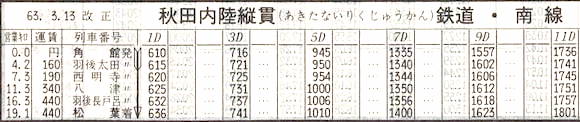 63. 3.13 改正 秋田内陸縦貫(あきたないりくじゅうかん)鉄道・南線
営業キロ 運賃 列車番号 1D 3D 5D 7D 9D 11D
0.0 円 角館発 610 … 716 … 945 … 1335 … 1557 … 1736
4.2 160 羽後太田〃 615 … 721 … 950 … 1340 … 1602 … 1741
7.3 190 西明寺〃 620 … 725 … 954 … 1344 … 1606 … 1745
11.3 340 八津〃 625 … 731 … 1000 … 1350 … 1612 … 1751
16.3 440 羽後長戸呂〃 632 … 737 … 1006 … 1356 … 1618 … 1757
19.1 440 松葉着 636 … 741 … 1010 … 1400 … 1623 … 1801